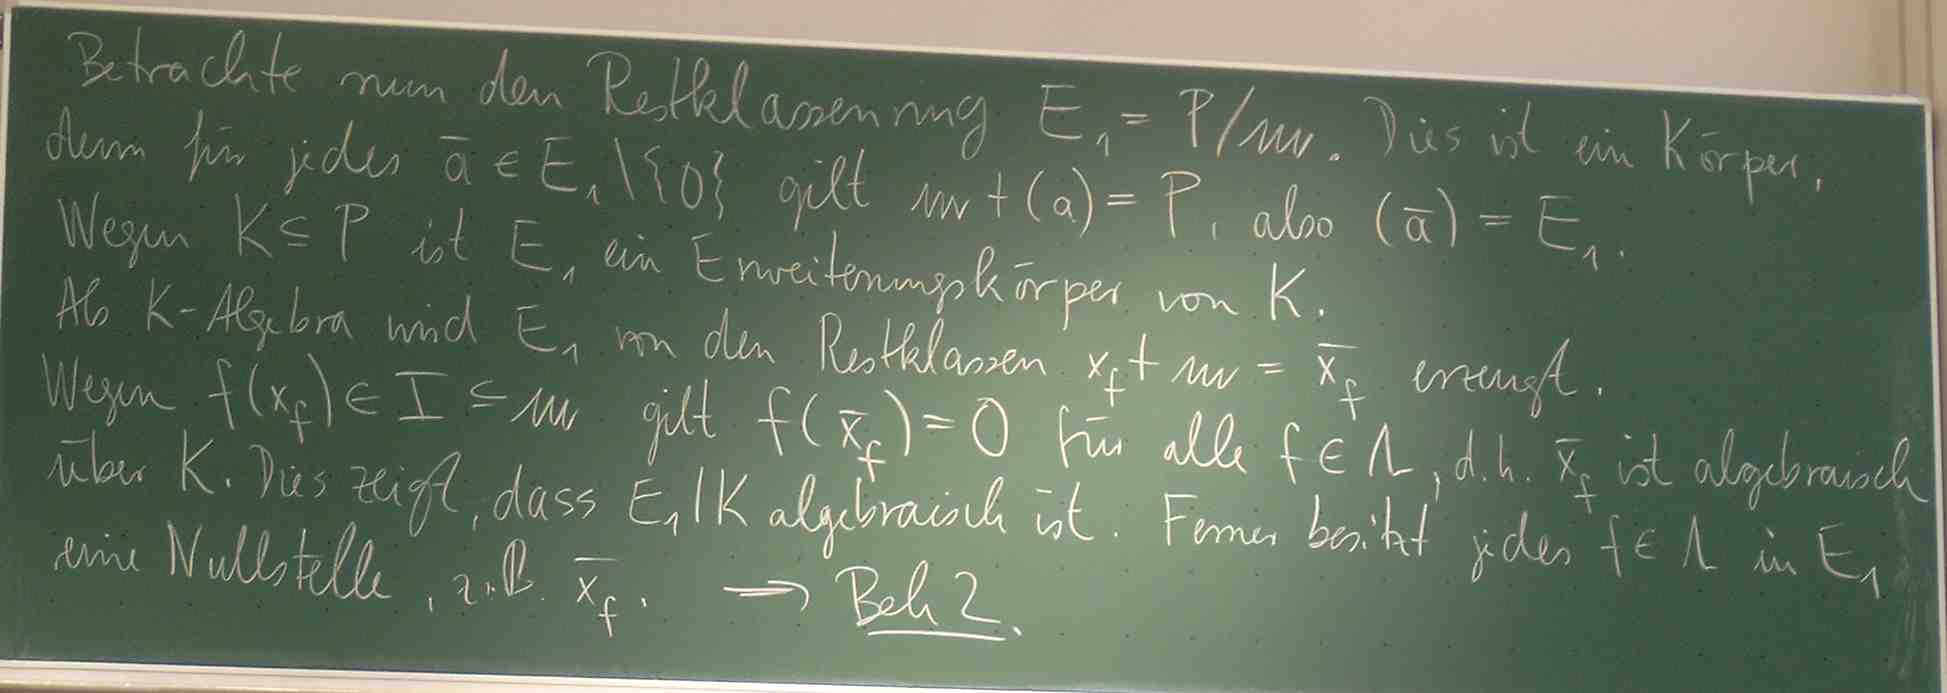 Betrachte nun den Restklassenring E₁ = P/𝔪. Dies ist ein Körper,
denn für jedes ā ∈ E₁\{0} gilt 𝔪 + (a) = P, also (ā) = E₁.
Wegen K ⊆ P ist E₁ ein Erweiterungskörper von K.
Als K-Algebra wird E₁ von den Restklassen x_f + 𝔪 = x̄_f erzeugt.
Wegen f(x_f) ∈ I ⊆ 𝔪 gilt f(x̄_f) = 0 für alle f ∈ Λ, d.h. x̄_f ist algebraisch
über K. Dies zeigt, dass E₁|K algebraisch ist. Ferner besitzt jedes f ∈ Λ in E₁
eine Nullstelle, z.B. x̄_f. → Beh 2.